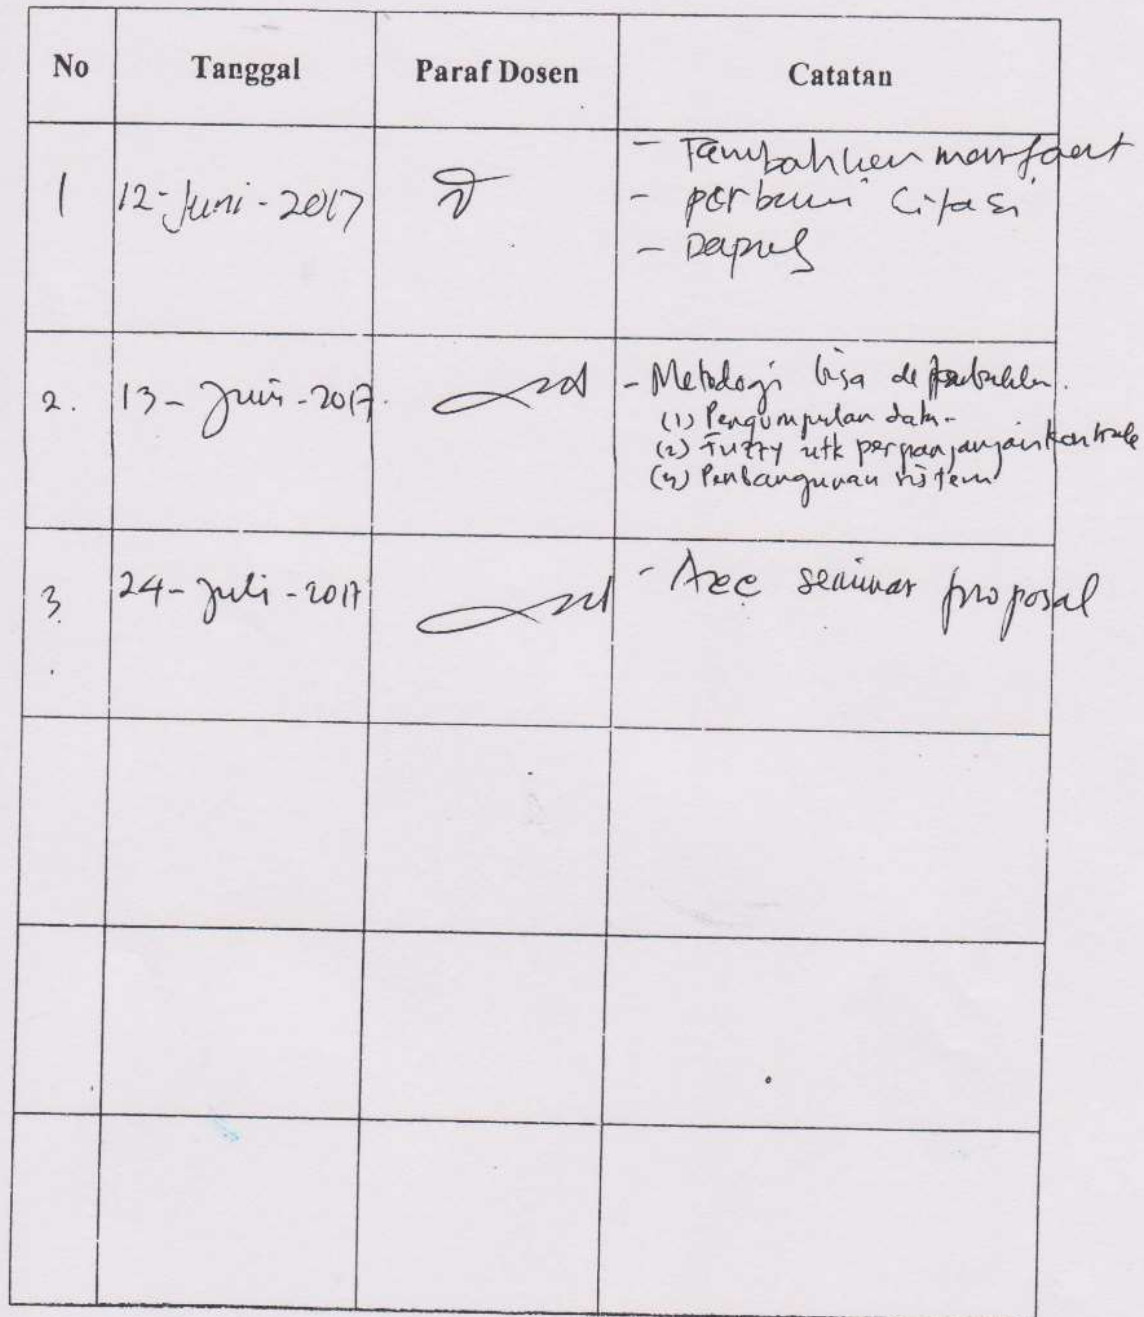 No Tanggal Paraf Dosen Catatan
1 12-Juni-2017
- Tambahkan manfaat
- perbaiki Citasi
- Dapus
2. 13-Juni-2017.
- Metodogi bisa
(1) Pengumpulan data-
(2) Fuzzy utk perpanjangan kontrak
Pembangunan sistem
3. 24-Juli-2017
- Acc seminar proposal